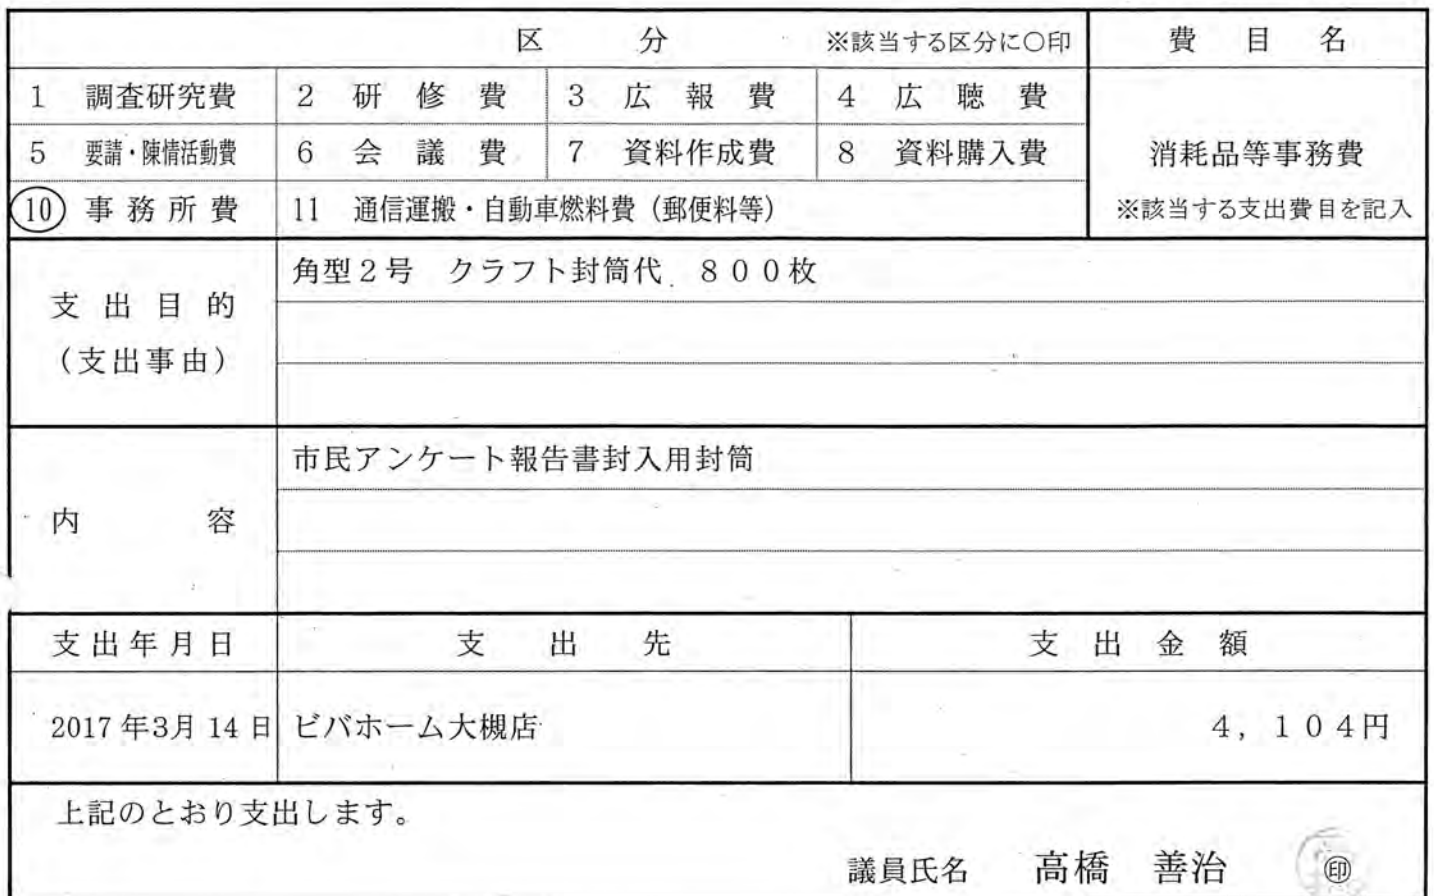 区 分 ※該当する区分に○印 費目名
1 調査研究費 2 研修費 3 広報費 4 広聴費
5 要請・陳情活動費 6 会議費 7 資料作成費 8 資料購入費 消耗品等事務費
⑩ 事務所費 11 通信運搬・自動車燃料費（郵便料等） ※該当する支出費目を記入
支出目的
（支出事由）
角型２号 クラフト封筒代 ８００枚
内容
市民アンケート報告書封入用封筒
支出年月日 支出先 支出金額
2017年3月14日 ビバホーム大槻店 ４，１０４円
上記のとおり支出します。
議員氏名 高橋 善治 ㊞